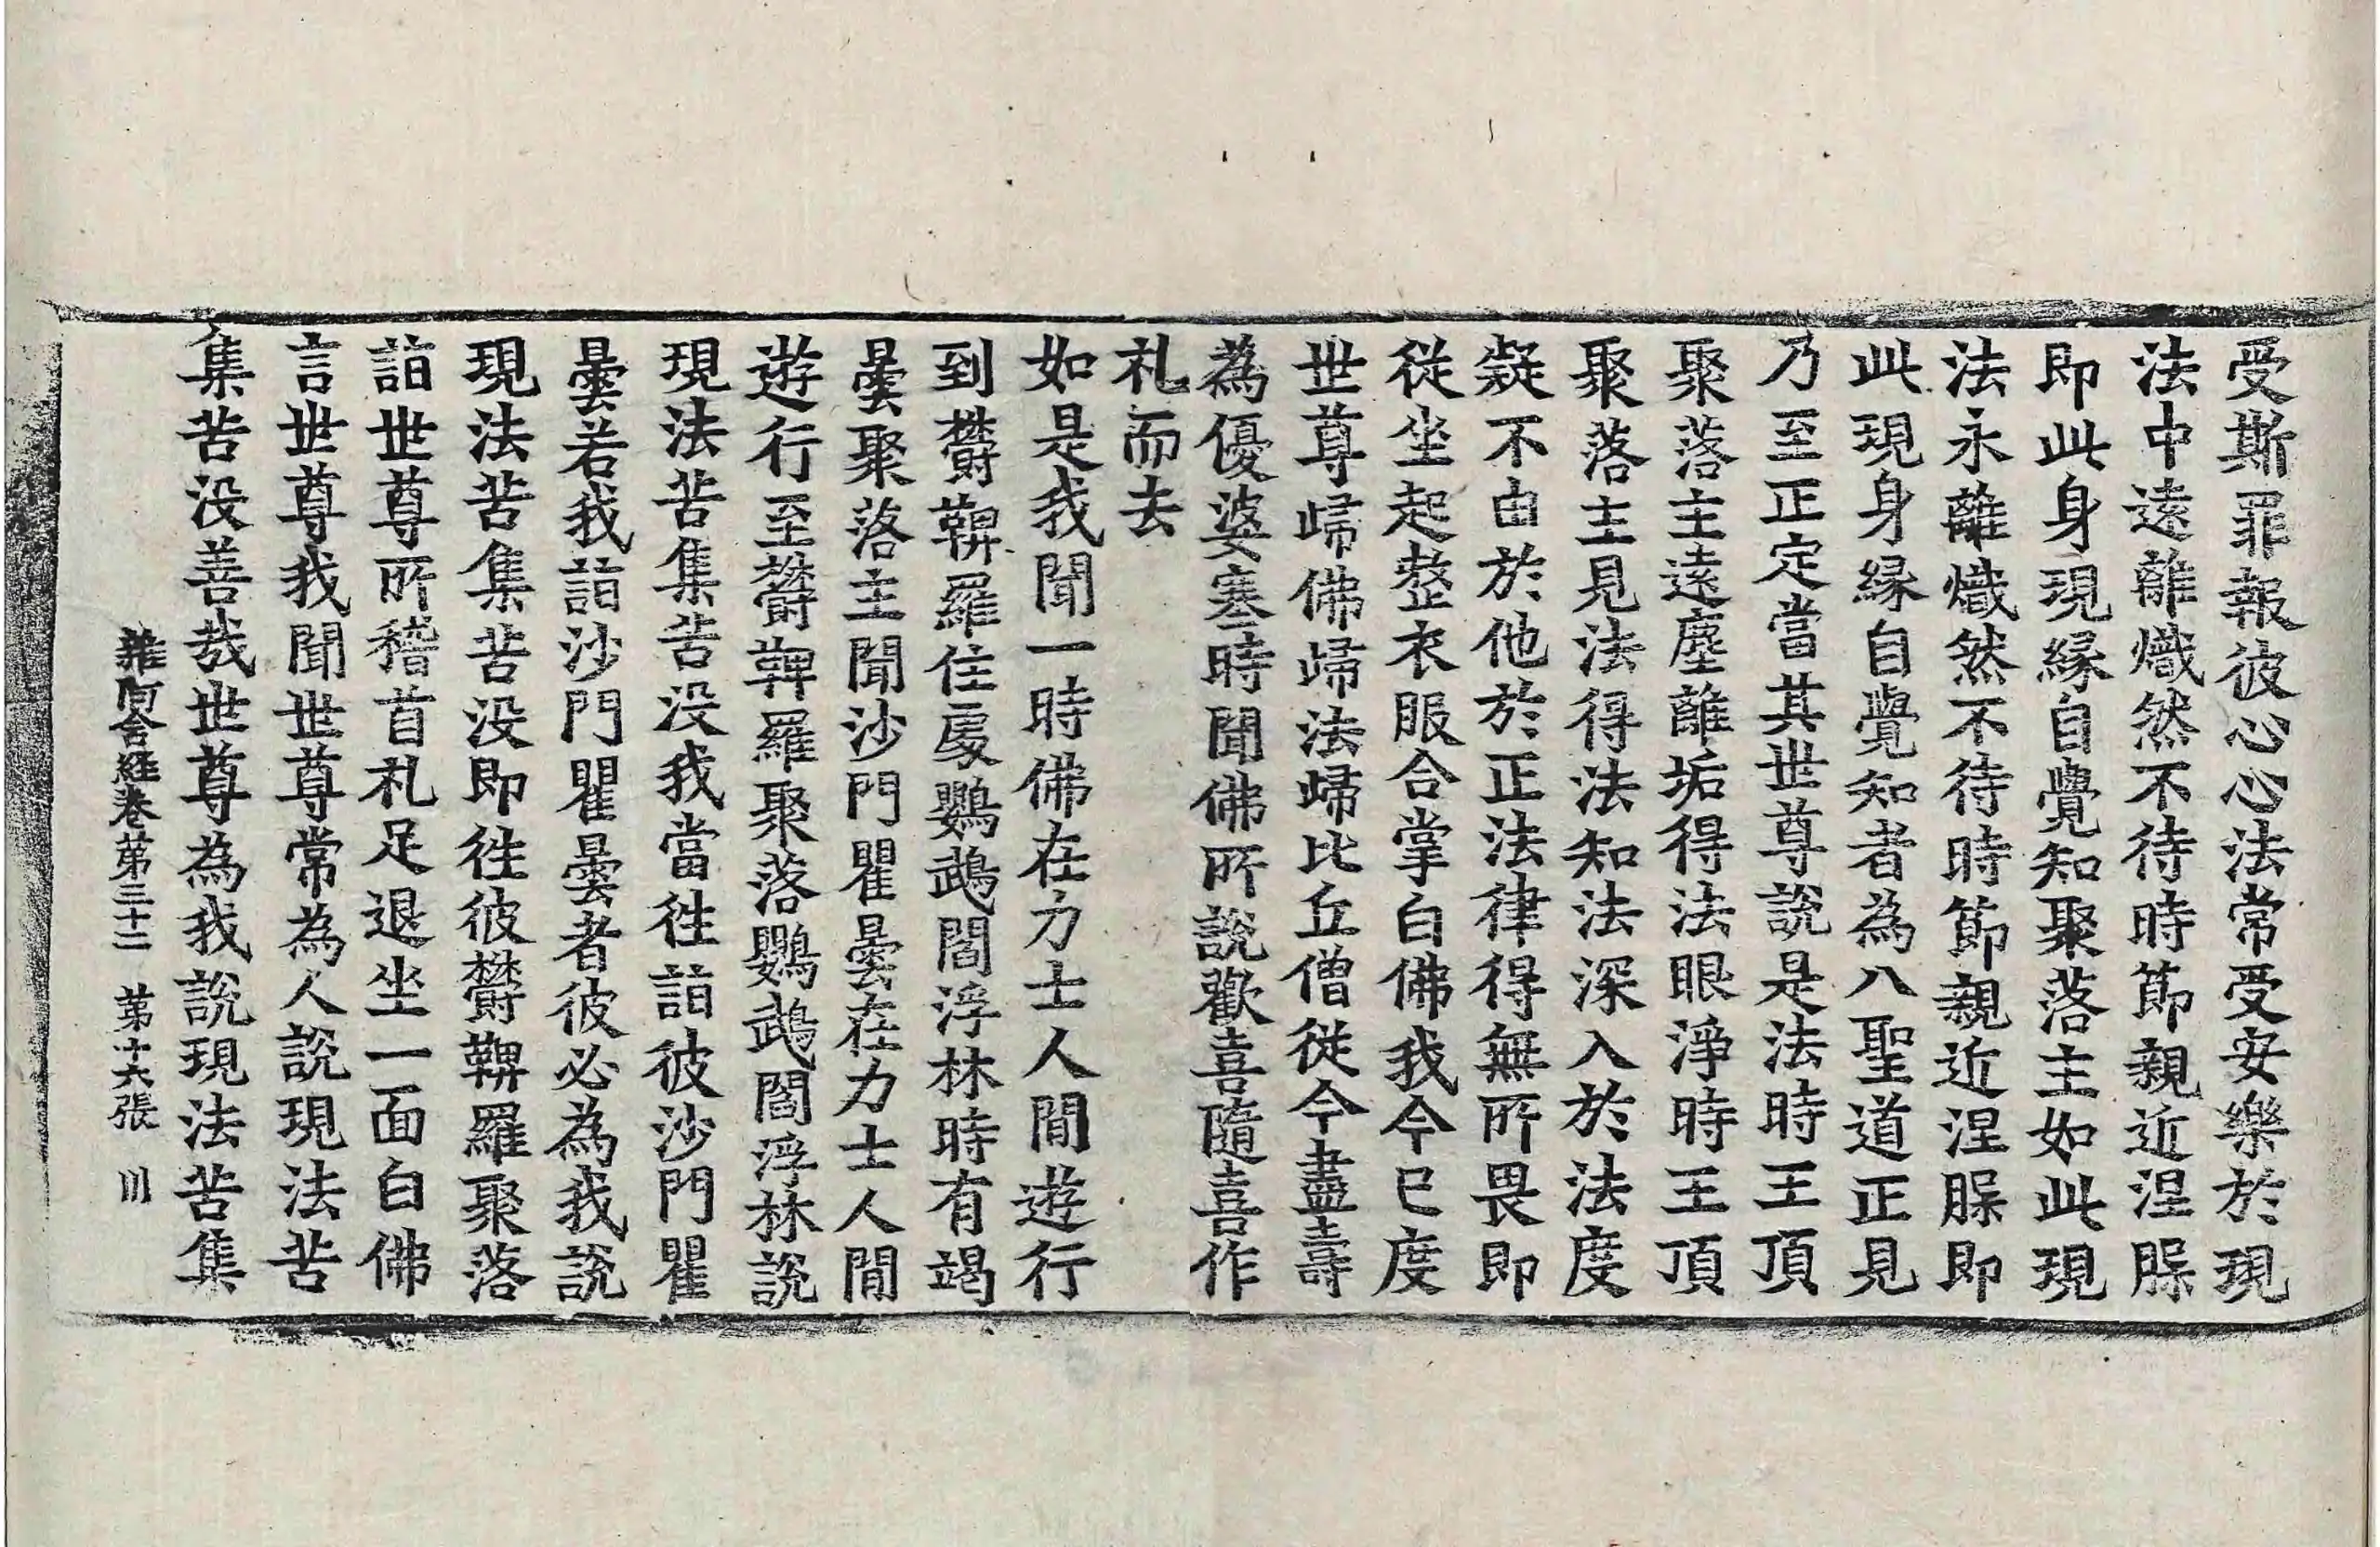 受斯罪報彼心心法常受安樂於現
法中遠離熾然不待時節親近涅槃
即此身現緣自覺知聚落主如此現
法永離熾然不待時節親近涅槃即
此現身緣自覺知者為八聖道正見
乃至正定當其世尊說是法時王頂
聚落主遠塵離垢得法眼淨時王頂
聚落主見法得法知法深入於法度
疑不由於他於正法律得無所畏即
從坐起整衣服合掌白佛我今已度
世尊歸佛歸法歸比丘僧從今盡壽
為優婆塞時聞佛所說歡喜隨喜作
礼而去
如是我聞一時佛在力士人間遊行
到欝鞞羅住處鸚鵡閻浮林時有竭
曇聚落主聞沙門瞿曇在力士人間
遊行至欝鞞羅聚落鸚鵡閻浮林說
現法苦集苦没我當往詣彼沙門瞿
曇若我詣沙門瞿曇者彼必為我說
現法苦集苦没即往彼欝鞞羅聚落
詣世尊所稽首礼足退坐一面白佛
言世尊我聞世尊常為人說現法苦
集苦没善哉世尊為我說現法苦集
雜阿含経巻苐三十二 苐十六張 川